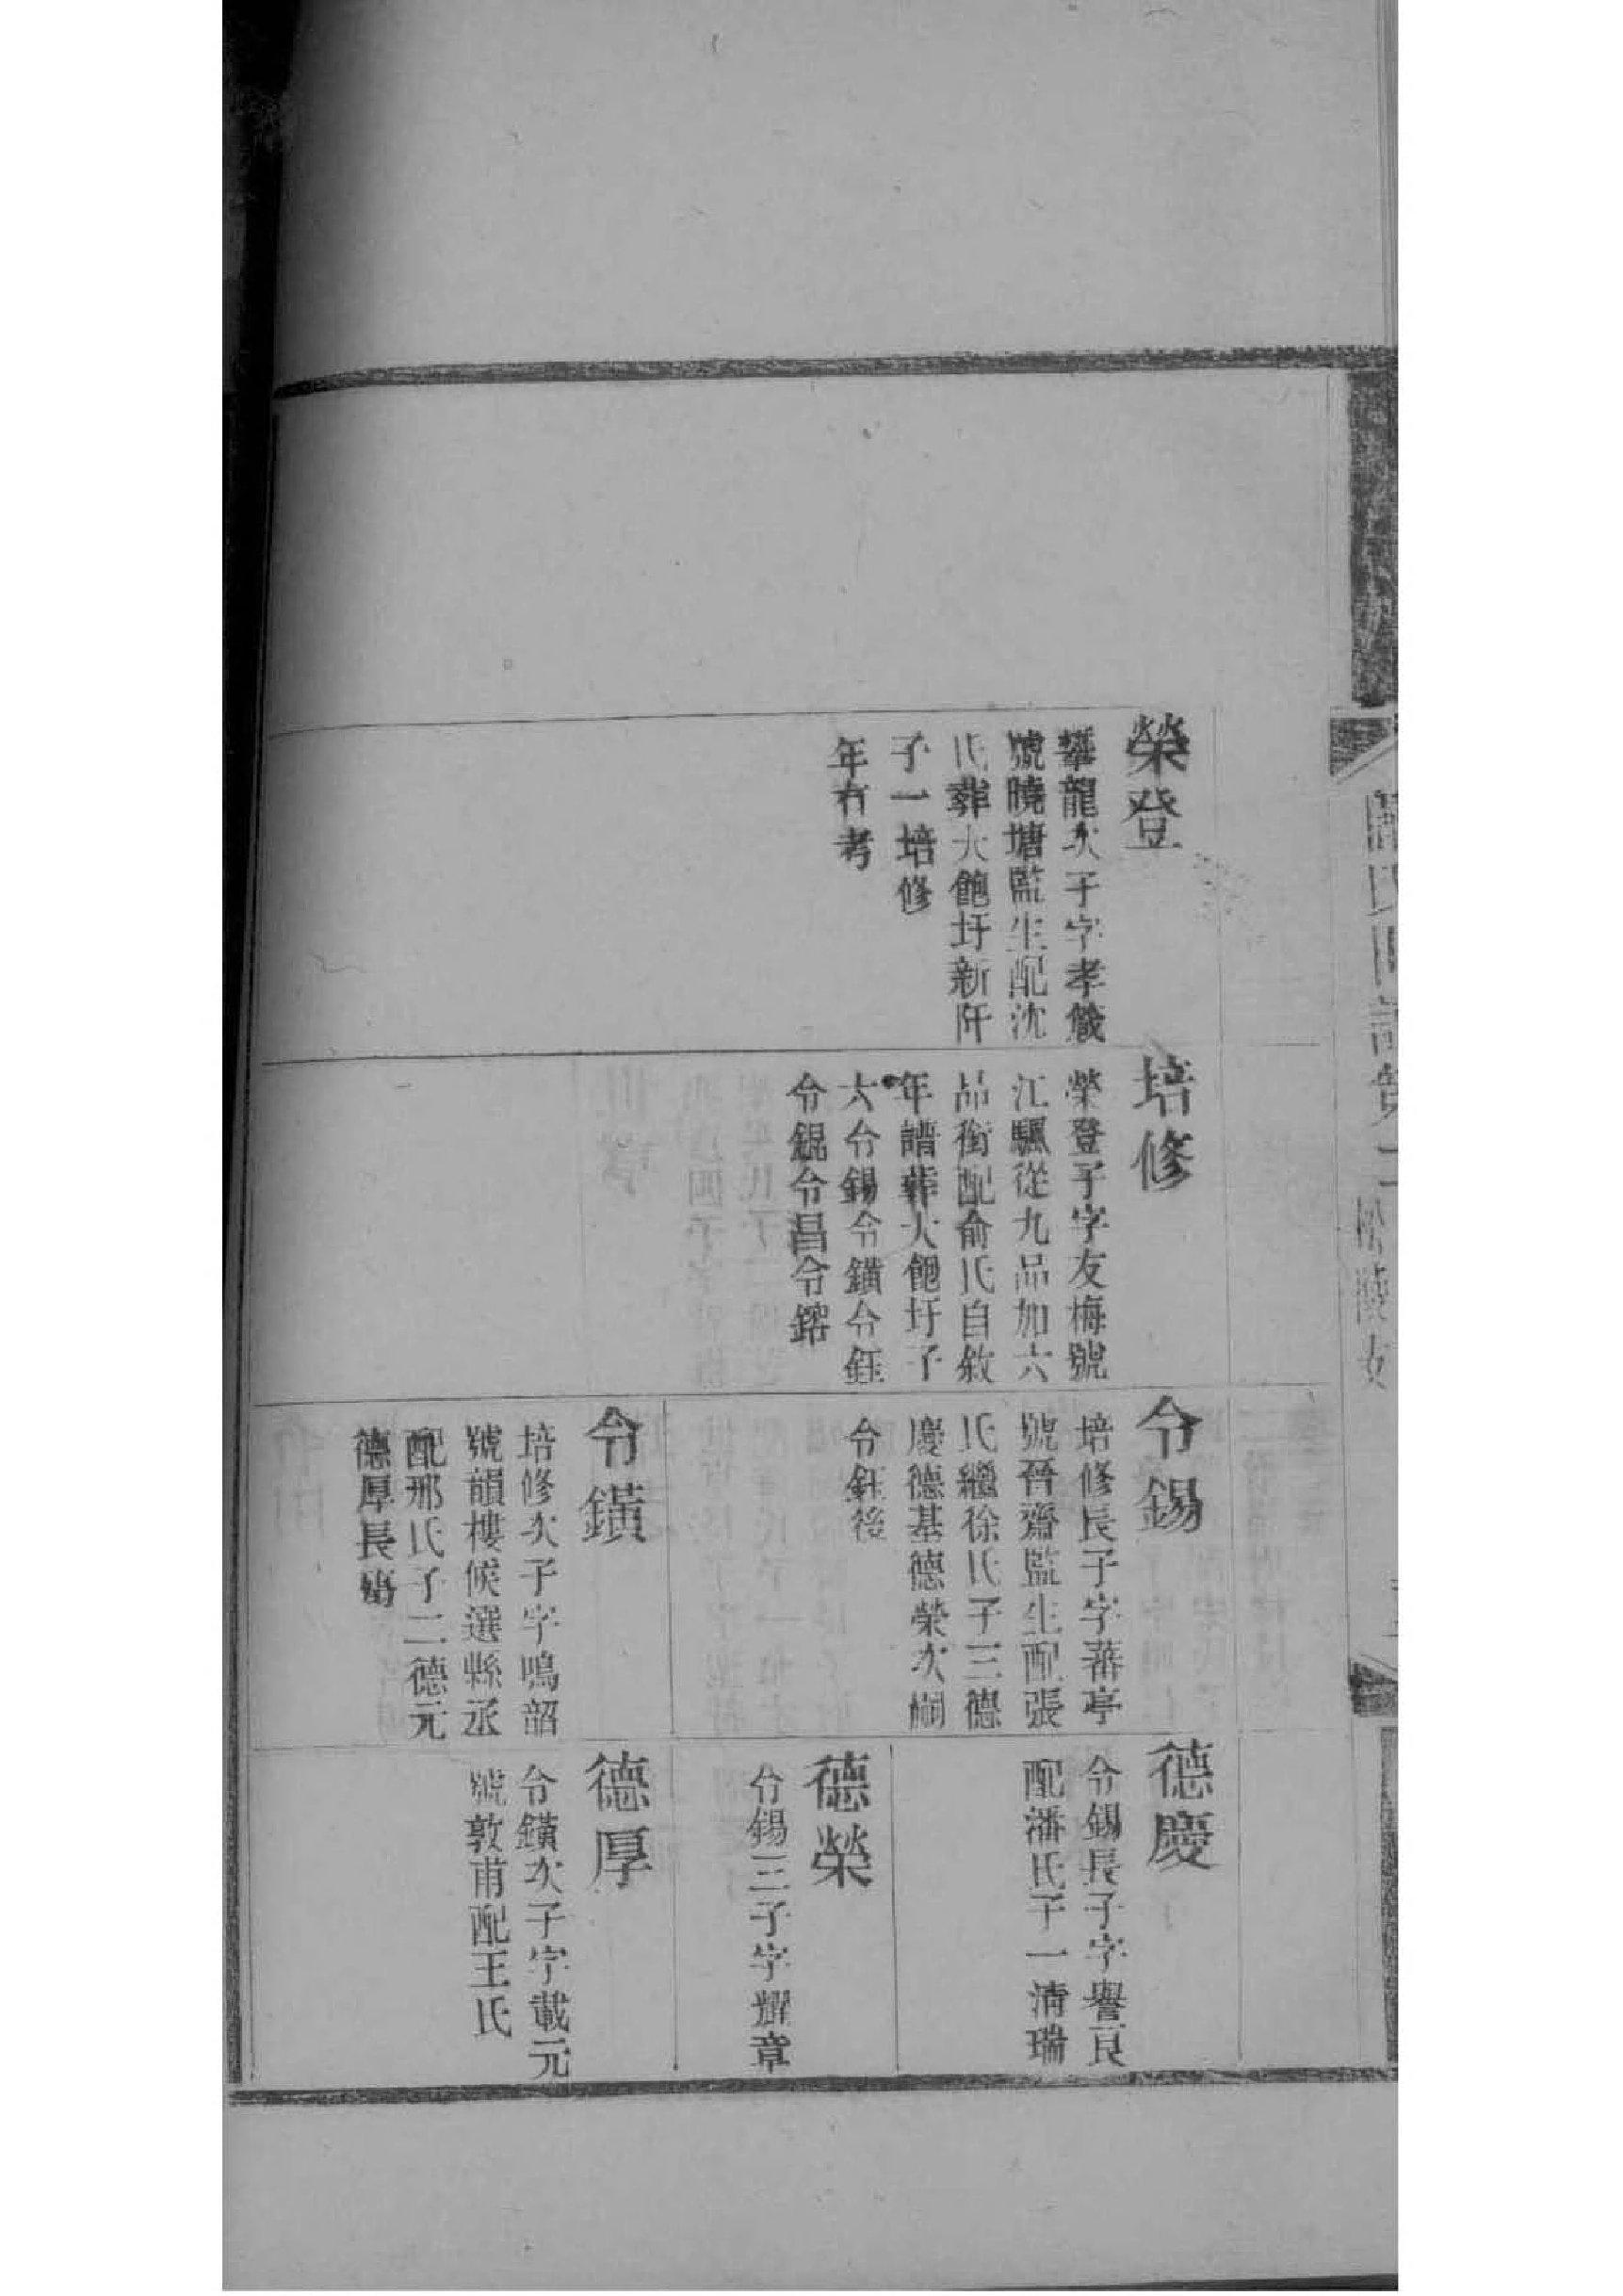 榮登
龍次子字孝箴
號曉塘監生配沈
氏葬大飽圩新阡
子一培修
年有考
培修
榮登子字友梅號
江驪從九品加六
品銜配俞氏自敘
年譜葬大飽圩子
六令錫令鐄令鈺
令錕令昌令鎔
令錫
培修長子字蕃亭
號晉齋監生配張
氏繼徐氏子三德
慶德基德榮次嗣
令鈺後
令鐄
培修次子字鳴韶
號韻樓候選縣丞
配邢氏子二德元
德厚長殤
德慶
令錫長子字譽艮
配潘氏子一清瑞
德榮
令錫三子字耀章
德厚
令鐄次子字載元
號敦甫配王氏